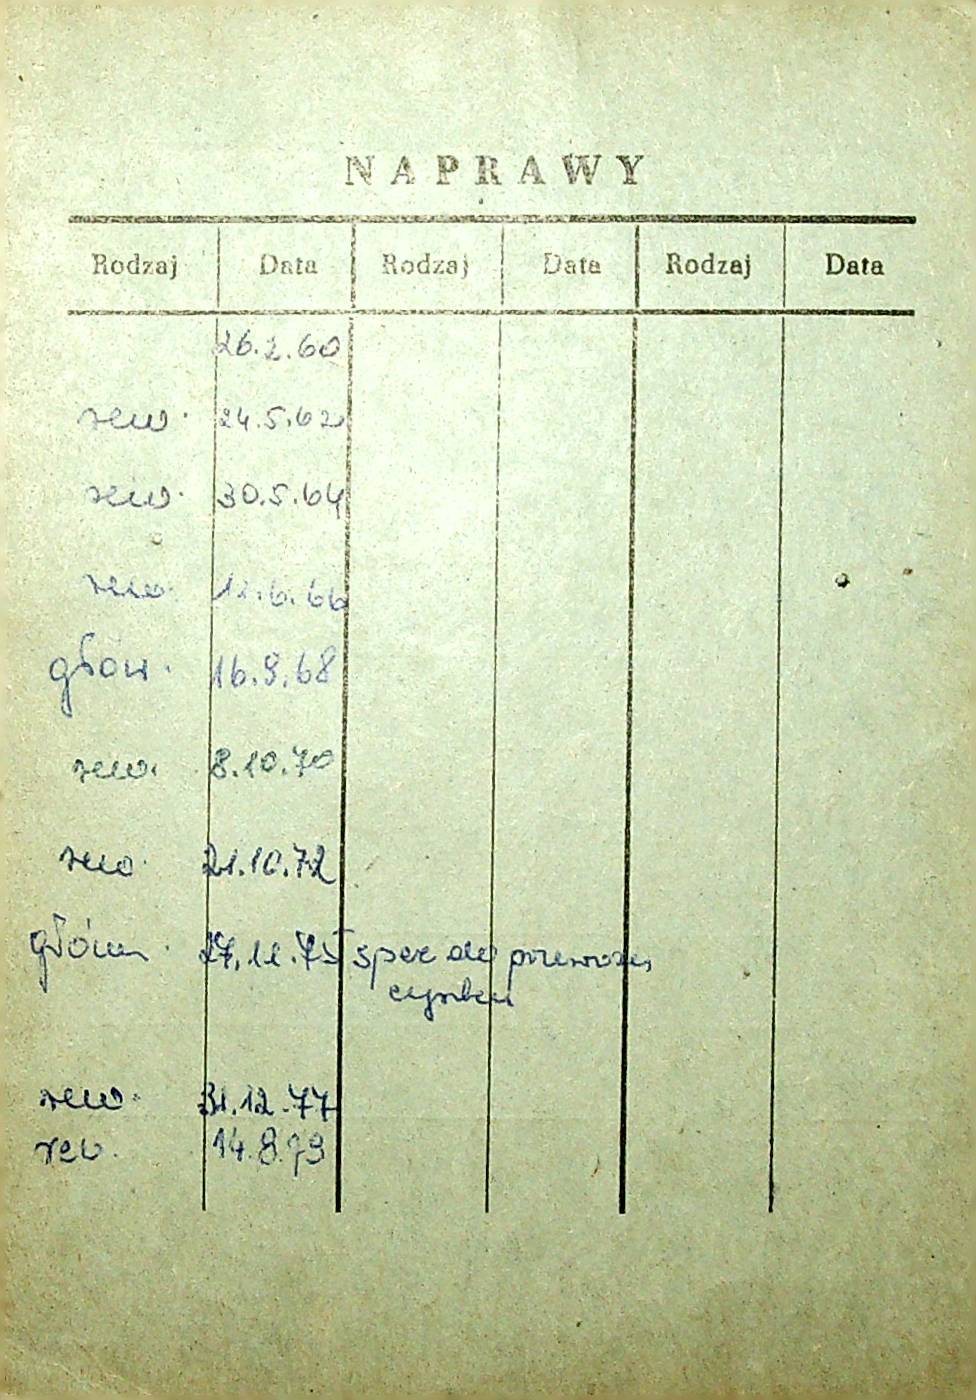 NAPRAWY
Rodzaj Data Rodzaj Data Rodzaj Data
26.2.60
rew. 24.5.62
rew. 30.5.64
rew. 12.6.66
głow. 16.9.68
rew. 8.10.70
rew. 21.10.72
główn. 27.11.75 spec do przewozu
rew. 31.12.77
rew. 14.8.79